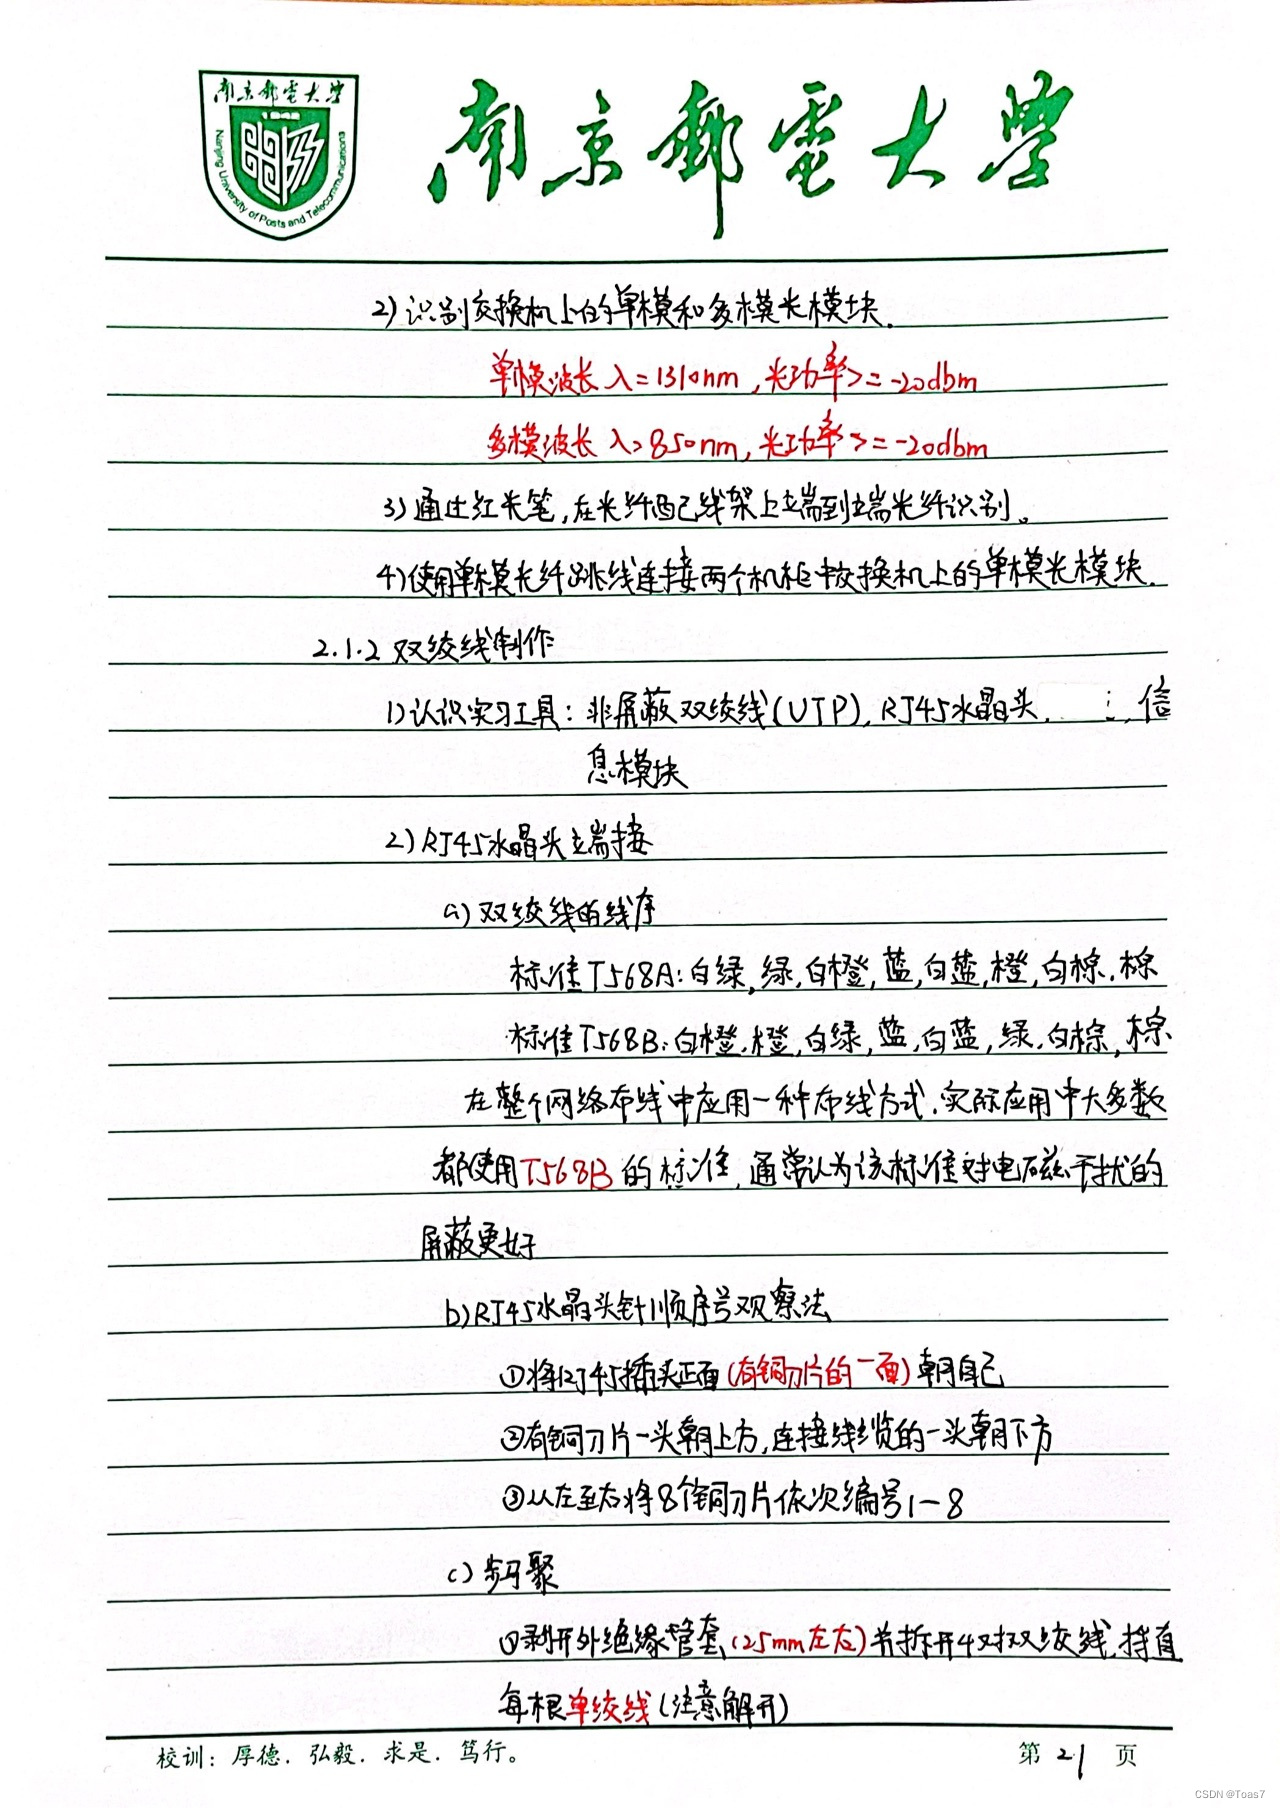 南京郵電大學
Nanjing University of Posts and Telecommunications
南京郵電大學
2)识别交换机上的单模和多模光模块.
单模波长 λ=1310nm,光功率>=-20dbm
多模波长 λ=850nm,光功率>=-20dbm
3)通过红光笔,在光纤配线架上端到端光纤识别。
4)使用单模光纤跳线连接两个机柜中交换机上的单模光模块.
2.1.2 双绞线制作
1)认识实习工具:非屏蔽双绞线(UTP),RJ45水晶头, 信
息模块
2)RJ45水晶头端接
a)双绞线的线序
标准T568A:白绿,绿,白橙,蓝,白蓝,橙,白棕,棕
标准T568B:白橙,橙,白绿,蓝,白蓝,绿,白棕,棕
在整个网络布线中应用一种布线方式.实际应用中大多数
都使用T568B的标准,通常认为该标准对电磁干扰的
屏蔽更好
b)RJ45水晶头针顺序号观察法
①将RJ45插头正面(有铜刀片的一面)朝自己
②有铜刀片一头朝上方,连接线缆的一头朝下方
③从左至右将8个铜刀片依次编号1-8
c)步骤
①剥开外绝缘管套(25mm左右)并拆开4对双绞线.捋直
每根单绞线(注意解开)
校训:厚德.弘毅.求是.笃行。
第 21 页
CSDN @Toas7